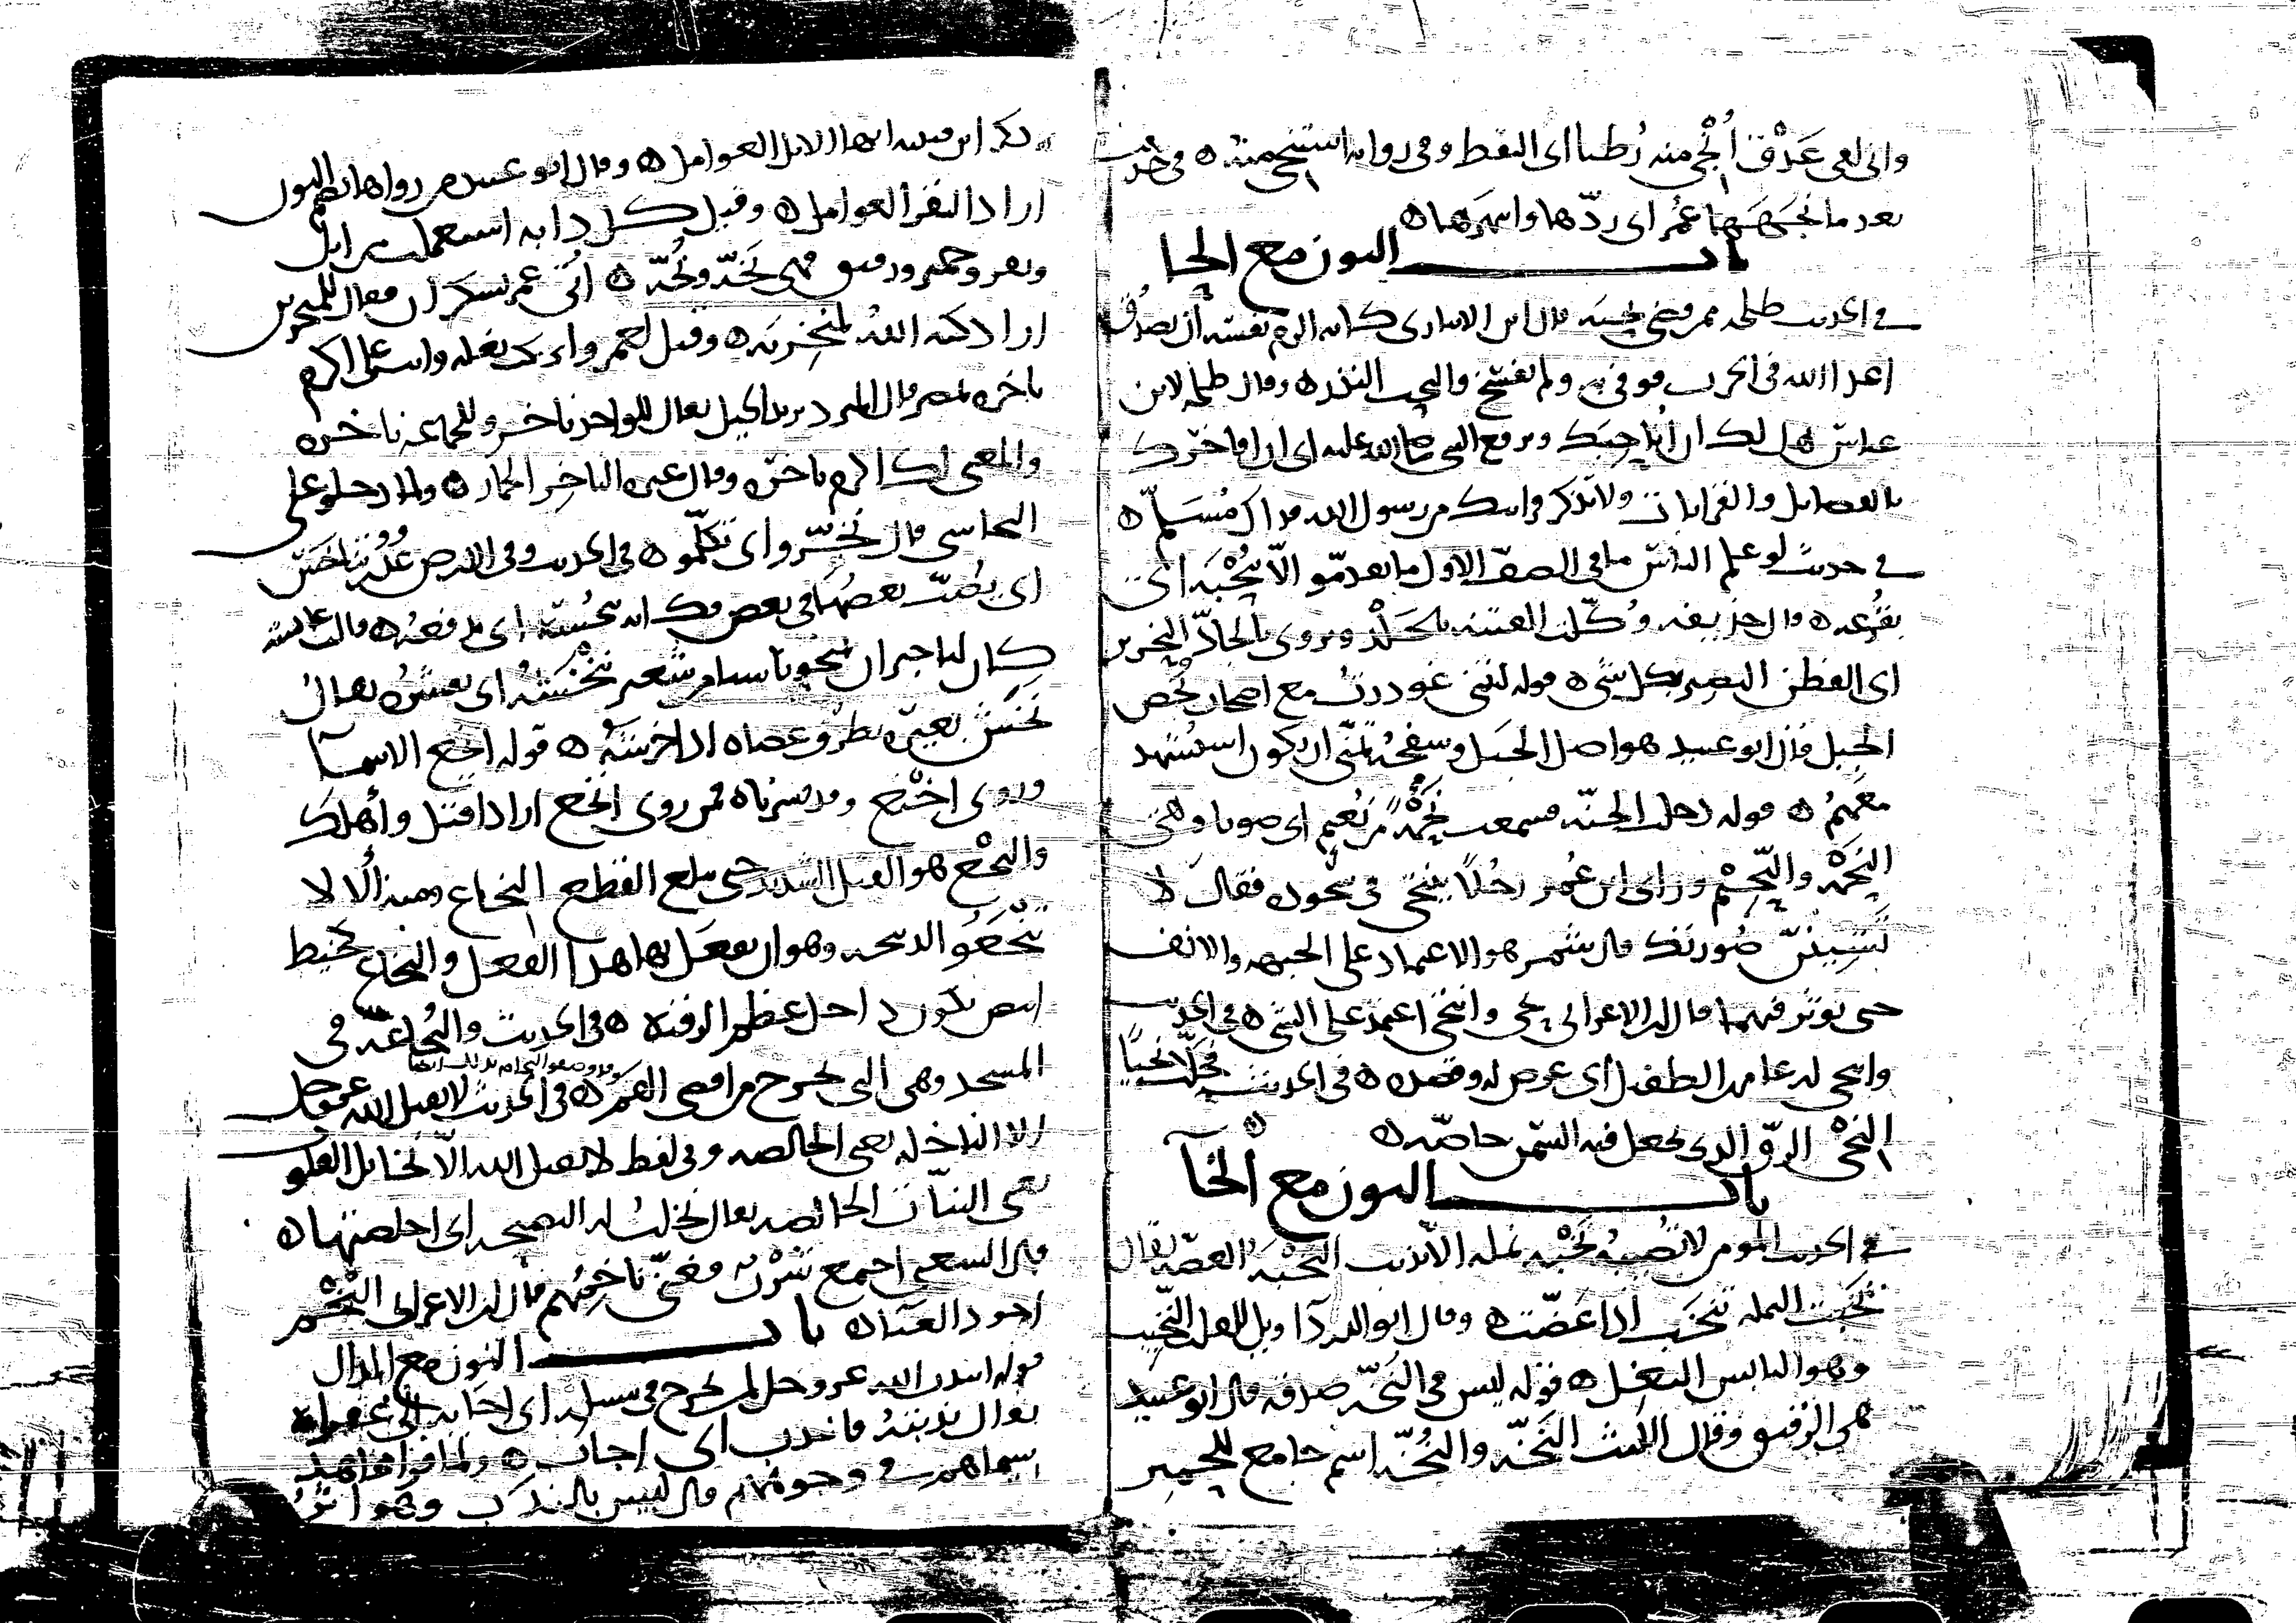 واني لفي عَذْق اُنْجي منه رُطبا اى التقط وفي روايه استنجى منه ه في حديث
بعد ما نجَهَها عُمَر اى ردّها وانتهرها ه
باب النون مع الحا
في الحديث طلحه ممن قضى نحبَه قال ابن الانبارى كانه الزم نفسَه أن يصدُق
اعدا الله في الحرب فوفى به ولم يفسَخ والنحب النذر ه وقال طلحه لابن
عباس هل لك ان اُناحِبَك وترفع النبي صلى الله عليه اى ان افاخرك
بالفضايل والقرابات ولا تذكر قرابتك من رسول الله فذاك مُسَلّم ه
في حديث لو علم الناس ما في الصف الاول ما تقدّمو الّا بنُحْبَه اى
بقُرعه ه قال حذيفه وُكّلت الفتنه بالحادّ النحرير
اى الفطن البصير بكل شى ه قوله ليتني غودرت مع اصحاب نُحْص
الجبل قال ابو عبيد هو اصل الجبل وسفحه تمنّى ان يكون استشهد
معهمُ ه قوله دخلت الجنّه فسمعت نَحْمةً من نُعيم اى صوتا وهي
النَحْمه والنَّحيم وراى ابن عُمر رجُلاً ينتحى في سجوده فقال لا
تَشينَنّ صُورتَك قال شمر هو الاعتماد على الجبهه والانف
حتى يوثر فيهما قال ابن الاعرابي نحى وانتحى اعتمد على الشى ه في الحديث
وانتحى له عامر بن الطفيل اى عرض له وقصده ه في الحديث فحلَّت نحيًا
النِحْى الزِقّ الذى يجعل فيه السَّمن خاصّه ه
باب النون مع الخآ
في الحديث المومن لا تُصيبه نَخْبه نمله الا بذنب النَخْبَه العضّه يقال
نخَبَت النمله تنخَب اذا عَضّت ه وقال ابو الدردآ ويل للقلب النَّخيب
وهو اليابس النغِل ه قوله ليس في النَخّه صدقه قال ابو عبيد
هي الرقيق وقال الليث النَخّه والنُخّه اسم جامع للحمير
وذكر ابن قتيبه انها الابل العوامل ه وقال ابو عبيده من رواها بضم النون
اراد البقر العوامل ه وقيل كل دابه استعملت من ابل
وبقر وحمير ورقيق فهي نَخّه ونُخّه ه اُتي عمر بسكران فقال للمنخرين
اراد كبّه اللهُ لمنخريه ه وقيل لعمرو اتركب بغله وانت على اكرم
ناخره بمصر قال المبرد يريد الخيل يقال للواحد ناخر وللجماعه ناخره
والمعنى انك اكرم ناخره وقال غيره الناخِر الحمار ه ولما دخلو على
النجاشي قال نخّرو اى تكلّمو ه في الحديث وفي الارض غُدُر تناخَسُ
اى يصُبّ بعضُها في بعض فكانه ينخُسه اى يدفعه ه قالت عايشه
كان لنا جيران يمنحونا شيا من شعير ننخُشه اى نقشره يقال
نخَش بعيرَه بطرف عصاه اذا خرشه ه قوله انخع الاسمآ
وروى اخنَع وقد فسرناه فمن روى انخع اراد اقتل واَهلك
والنخْع هو القتل الشديد حتى يبلغ القطع النخاع ومنه ألا لا
تنْخَعُو الذبيحه وهو ان يفعَل بها هذا الفعل والنخاع خيط
ابيض يكون داخل عظم الرقبه ه في الحديث والنُخاعَه في
المسجد وهي التي تخرج من اقصى الفم ه في الحديث لا يقبل الله عز وجل
الا الناخله يعنى الخالصه وفي لفظ لا يقبل الله الّا نخايل القلوب
يعنى النيّات الخالصه يقال نخلت له النصيحه اى اخلصتها ه
قال الشعبي اجتمع شَرْب فغنّى ناخِمُهم قال ابن الاعرابي النَخْم
اجود الغنا ه باب النون مع الدال
قوله انتدب الله عز وجل لمن يخرج في سبيله اى اجابه الى غفرانه
يقال ندبتُه فانتدب اى اجاب ه
سيماهم في وجوههم قال ليس بالندَب وهو اثر